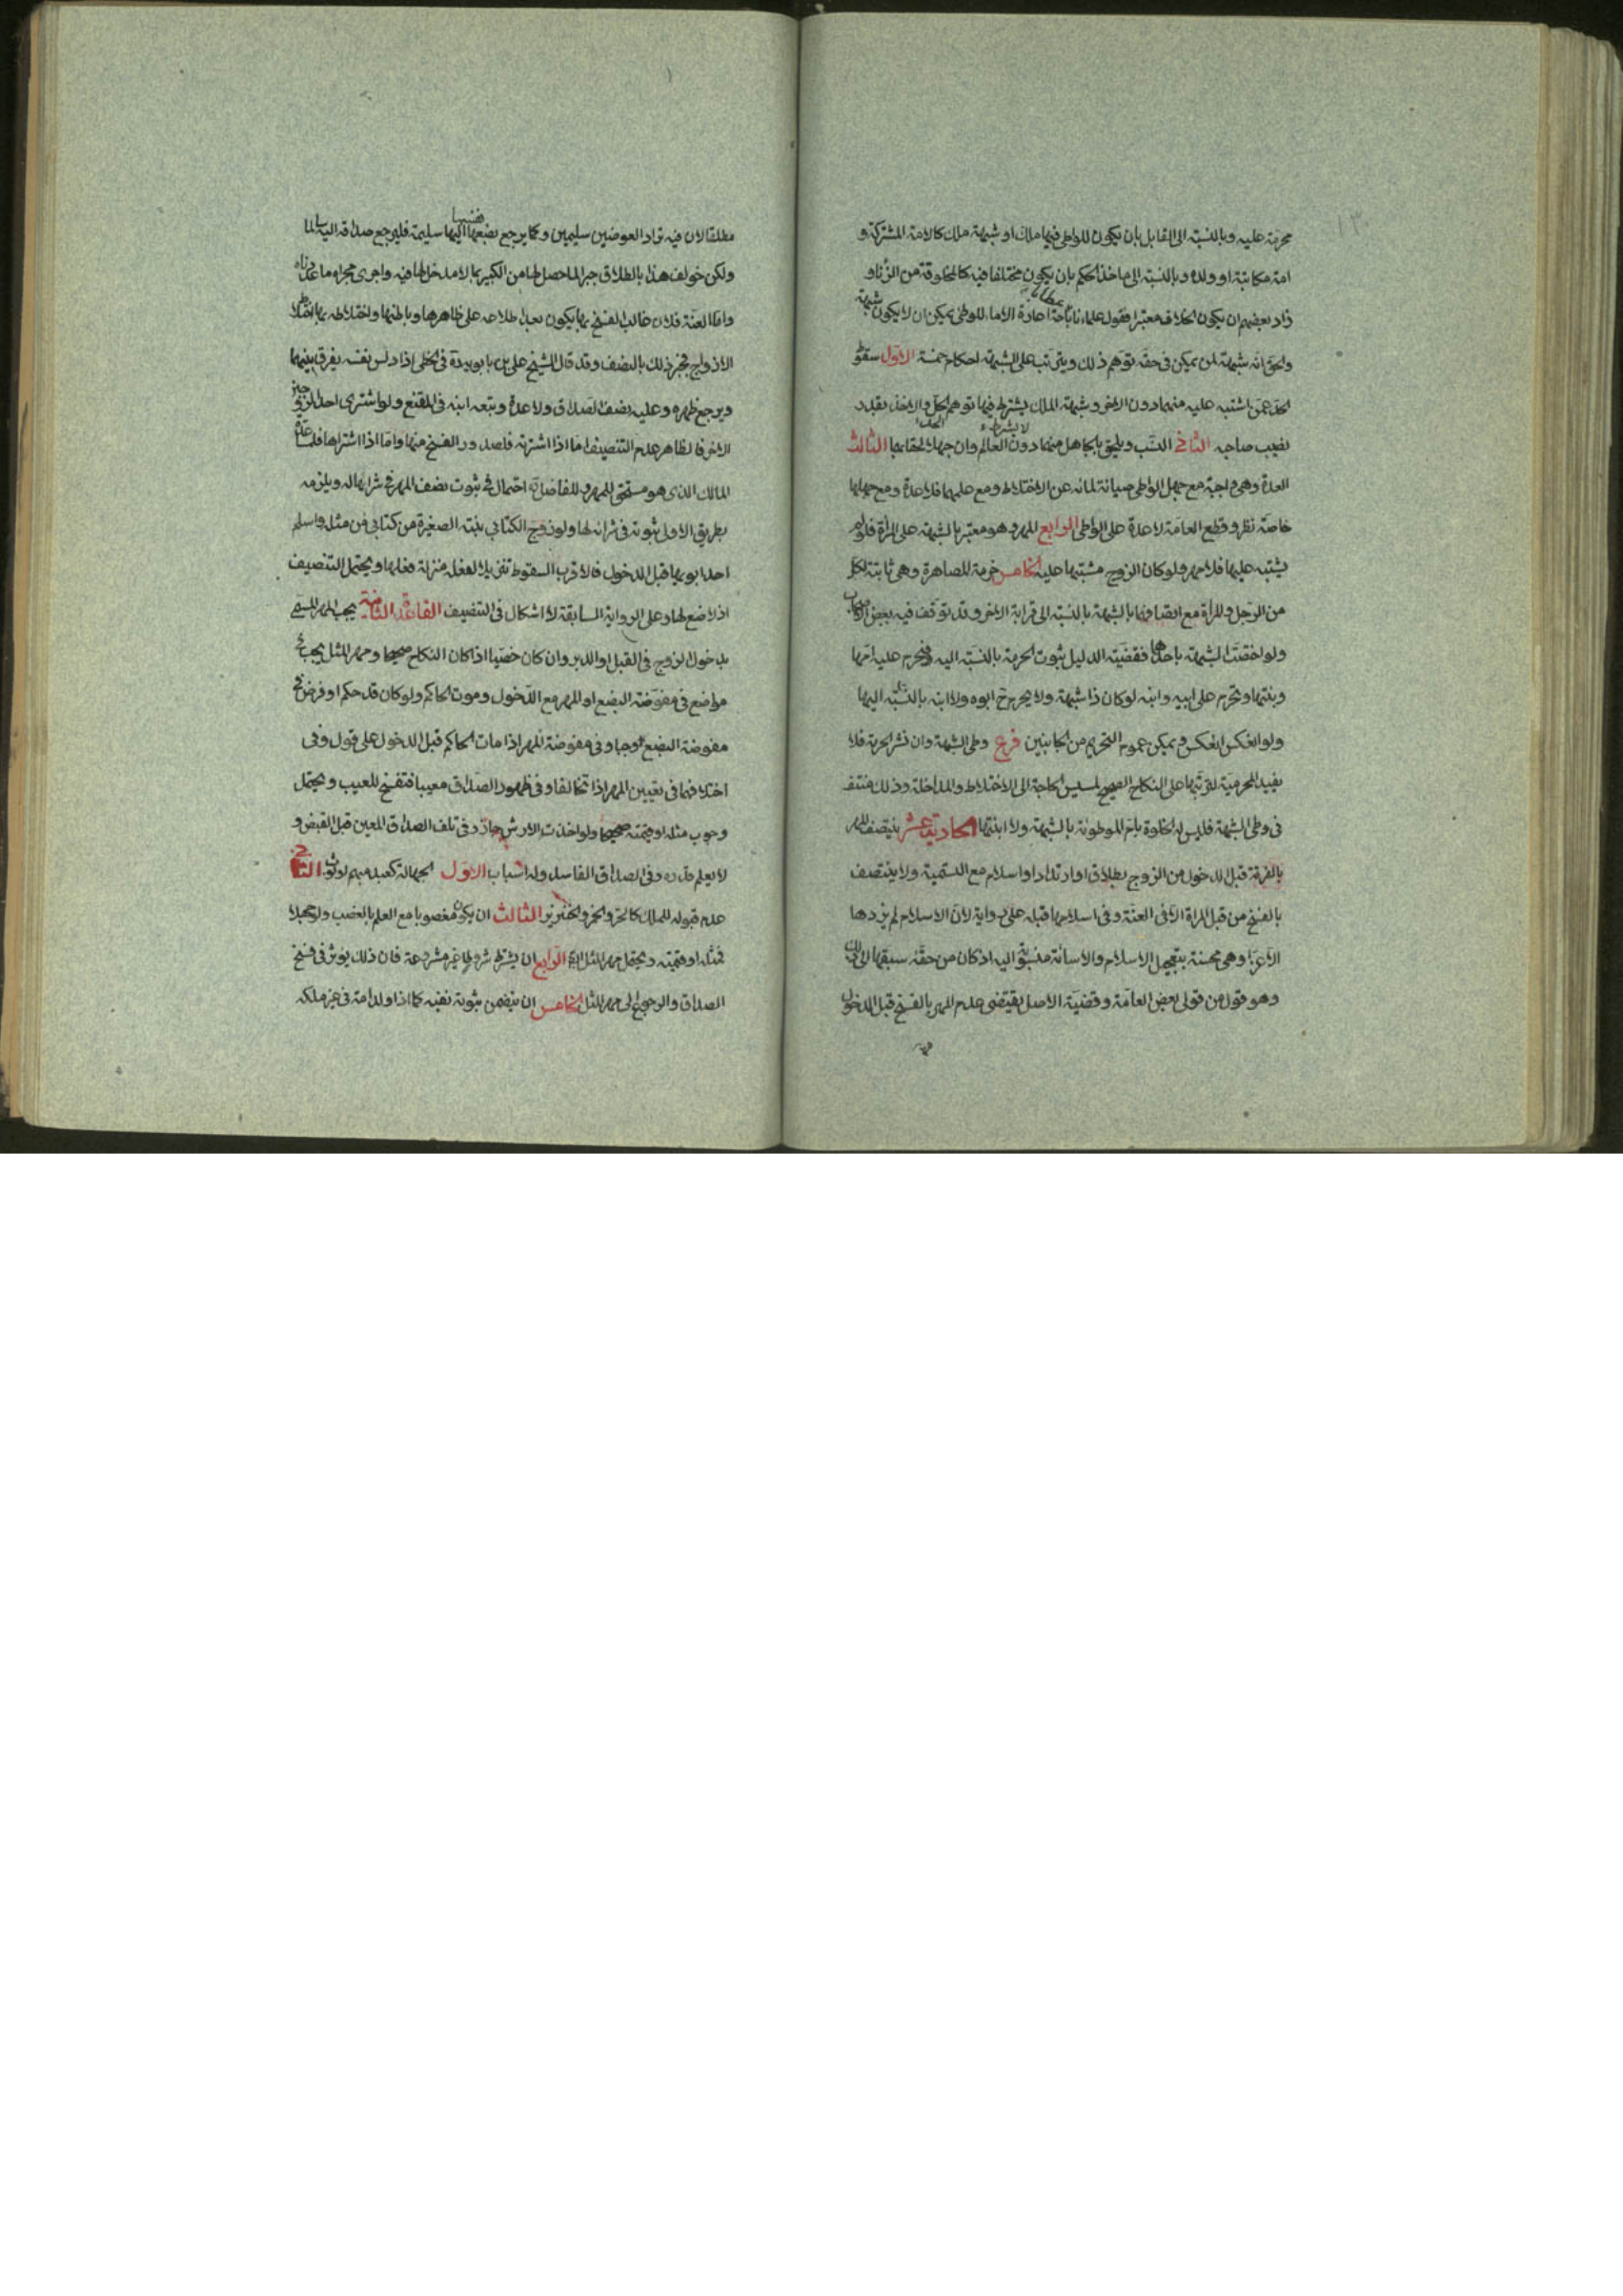 محرمة عليه وبالنسبة الى القابل بان يكون للواطى فيها ملك او شبهة ملك كالامة المشتركة و
امة مكاتبة او ولده وبالنسبة الى ماخذ الحكم بان يكون مختلفا فيه كالمخلوقة من الزنا و
زاد بعضهم ان يكون الخلاف معتبرا فقول علمائنا باباحة اعارة الاماء للوطى يمكن ان لا يكون شبهة
والحق انه شبهة لمن يمكن فى حقه توهم ذلك ويترتب على الشبهة احكام خمسة الاول سقوط
الحد عمن اشتبه عليه منهما دون الاخر وشبهة الملك يشترط فيها توهم الحل والا يحد بقدر
نصيب صاحبه الثانى النسب ويلحق بالجاهل منهما دون العالم وان جهلا لحق بهما الثالث
العدة وهى واجبة مع جهل الواطى صيانة لمائه عن الاختلاط ومع علمهما فلا عدة ومع جهلها
خاصة نظر وقطع العامة لا عدة على الواطى الرابع المهر وهو معتبر بالشبهة على المراة فلو لم
يشتبه عليها فلا مهر ولو كان الزوج مشتبها عليه الخامس حرمة المصاهرة وهى ثابتة لكل
من الرجل والمراة مع اتصافهما بالشبهة بالنسبة الى قرابة الاخر وقد توقف فيه بعض الاصحاب
ولو اختصت الشبهة باحدهما فقضية الدليل ثبوت الحرمة بالنسبة اليه فيحرم عليه امها
وبنتها وتحرم على ابيه وابنه لو كان ذا شبهة ولا يحرم ح ابوه ولا ابنه بالنسبة اليها
ولو انعكس انعكس ويمكن عموم التحريم من الجانبين فرع وطى الشبهة وان نشر الحرمة فلا
يفيد المحرمية لترتبها على النكاح الصحيح لمسيس الحاجة الى الاختلاط والمداخلة وذلك منتف
فى وطى الشبهة فليس له الخلوة بام الموطوئة بالشبهة ولا ابنتها الحادية عشر ينتصف المهر
بالفرقة قبل الدخول من الزوج بطلاق او ارتداد او اسلام مع التسمية ولا ينتصف
بالفسخ من قبل المراة الا فى العنة وفى اسلامها قبله على رواية لان الاسلام لم يزدها
الا عزا وهى محسنة بتعجيل الاسلام والاسائة منسوبة اليه اذ كان من حقه سبقها الى ذلك
وهو قول من قولى بعض العامة وقضية الاصل يقتضى عدم المهر بالفسخ قبل الدخول
مطلقا لان فيه تراد العوضين سليمين وكما يرجع بضعها اليها سليمة فليرجع صداقه اليه سالما
ولكن خولف هذا بالطلاق جبرا لما حصل لها من الكسر بما لا مدخل لها فيه واجرى مجراه ما عددناه
واما العنة فلان غالب الفسخ بها يكون بعد اطلاعه على ظاهرها وباطنها واختلاطه بها اختلاط
الازواج فجبر ذلك بالنصف وقد قال الشيخ على بن بابويه ره فى الخصى اذا دلس نفسه يفرق بينهما
ويرجع ظهره وعليه نصف الصداق ولا عدة وتبعه ابنه فى المقنع ولو اشترى احد الزوجين
الاخر فالظاهر عدم التنصيف اما اذا اشترته فلصدور الفسخ منها واما اذا اشتراها فلمساعدة
المالك الذى هو مستحق للمهر وللفاضل ره احتمال فى ثبوت نصف المهر فى شرائها له ويلزمه
بطريق الاولى ثبوته فى شرائه لها ولو زوج الكتابى بنته الصغيرة من كتابى فمن مثله واسلم
احد ابويها قبل الدخول فالاقرب السقوط تنزيلا لفعله منزلة فعلها ويحتمل التنصيف
اذ لا صنع لها وعلى الرواية السابقة لا اشكال فى التنصيف القاعدة الثامنة يجب المهر المسمى
بدخول الزوج فى القبل او الدبر وان كان خصيا اذا كان النكاح صحيحا ومهر المثل يجب فى
مواضع فى مفوضة البضع او المهر مع الدخول وموت الحاكم ولو كان قد حكم او فرض فى
مفوضة البضع وجبا وفى مفوضة المهر اذا مات الحاكم قبل الدخول على قول وفى
اختلافهما فى تعيين المهر اذا تحالفا وفى ظهور الصداق معيبا فتفسخ للعيب ويحتمل
وجوب مثله او قيمته صحيحا ولو اخذت الارش جاز وفى تلف الصداق المعين قبل القبض و
لا يعلم قدره وفى الصداق الفاسد وله اسباب الاول الجهالة كعبد مبهم او ثوب الثانى
عدم قبوله للملك كالحر والخمر والخنزير الثالث ان يكون مغصوبا مع العلم بالغصب ولو جهلا
فمثله او قيمته ويحتمل مهر المثل الرابع ان يشترط شروطا غير مشروعة فان ذلك يوثر فى فسخ
الصداق والرجوع الى مهر المثل الخامس ان يتضمن ثبوته نفيه كما اذا اولد امة فى غير ملكه